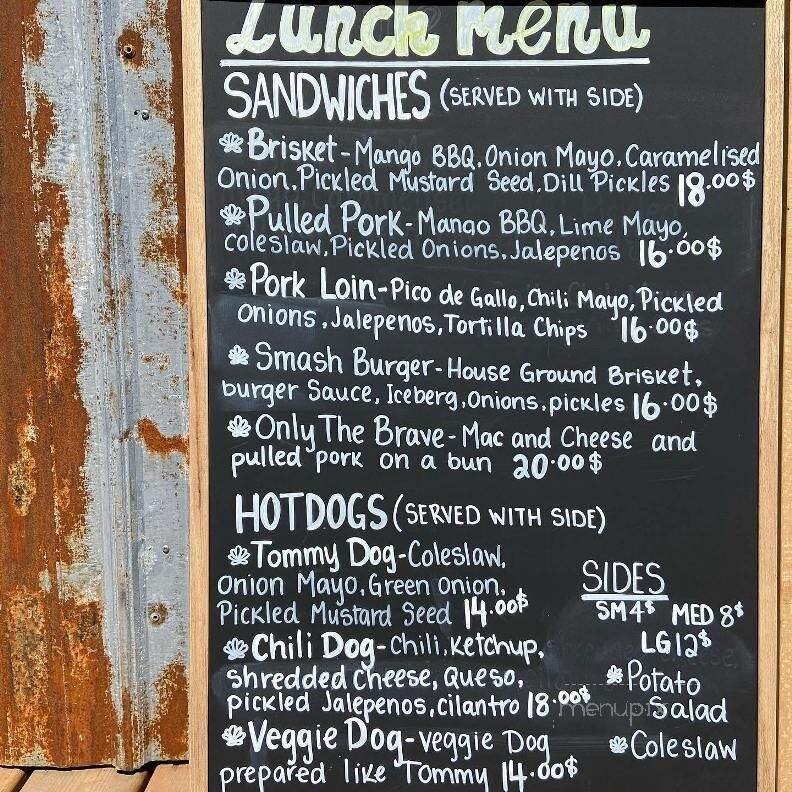 Lunch Menu
SANDWICHES (SERVED WITH SIDE)
Brisket - Mango BBQ, Onion Mayo, Caramelised
Onion, Pickled Mustard Seed, Dill Pickles 18.00$
Pulled Pork - Mango BBQ, Lime Mayo,
coleslaw, Pickled Onions, Jalepenos 16.00$
Pork Loin - Pico de Gallo, Chili Mayo, Pickled
Onions, Jalepenos, Tortilla Chips 16.00$
Smash Burger - House Ground Brisket,
burger Sauce, Iceberg, Onions, pickles 16.00$
Only The Brave - Mac and Cheese and
pulled pork on a bun 20.00$
HOTDOGS (SERVED WITH SIDE)
Tommy Dog - Coleslaw,
Onion Mayo, Green Onion,
Pickled Mustard Seed 14.00$
Chili Dog - Chili, Ketchup,
shredded Cheese, Queso,
pickled Jalepenos, cilantro 18.00$
Veggie Dog - veggie Dog
prepared like Tommy 14.00$
SIDES
SM 4$ MED 8$
LG 12$
Potato
Salad
Coleslaw
menupix